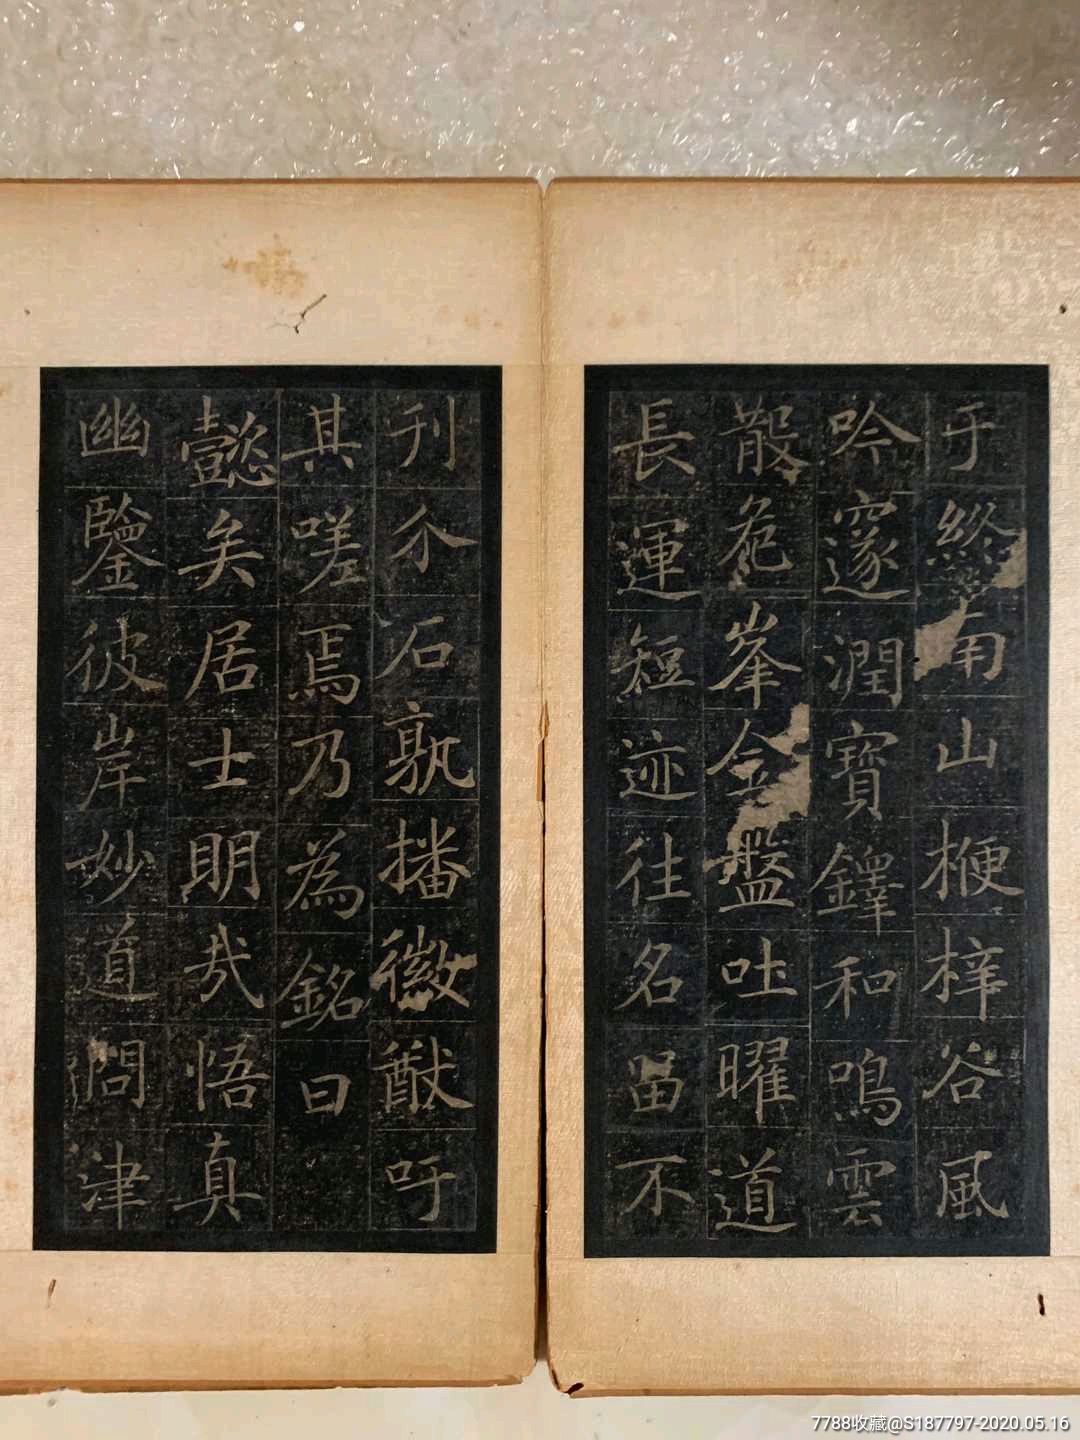 于終南山楩梓谷風
吟邃澗寶鐸和鳴雲
散危峯金盤吐曜道
長運短迹往名留不
刊介石孰播徽猷吁
其嗟焉乃為銘曰
懿矣居士明哉悟真
幽鑒彼岸妙道問津
7788收藏@S187797-2020.05.16